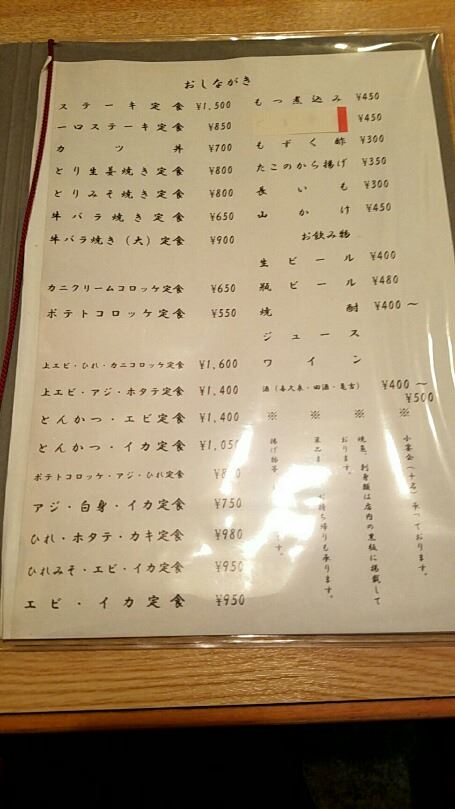 おしながき
ステーキ定食 ¥1,500
一口ステーキ定食 ¥850
カツ丼 ¥700
とり生姜焼き定食 ¥800
とりみそ焼き定食 ¥800
牛バラ焼き定食 ¥650
牛バラ焼き(大)定食 ¥900
カニクリームコロッケ定食 ¥650
ポテトコロッケ定食 ¥550
上エビ・ひれ・カニコロッケ定食 ¥1,600
上エビ・アジ・ホタテ定食 ¥1,400
とんかつ・エビ定食 ¥1,400
とんかつ・イカ定食 ¥1,050
ポテトコロッケ・アジ・ひれ定食
アジ・白身・イカ定食 ¥750
ひれ・ホタテ・カキ定食 ¥980
ひれみそ・エビ・イカ定食 ¥950
エビ・イカ定食 ¥950
もつ煮込み ¥450
¥450
もずく酢 ¥300
たこのから揚げ ¥350
長いも ¥300
山かけ ¥450
お飲み物
生ビール ¥400
瓶ビール ¥480
焼酎 ¥400～
ジュース
ワイン
酒(喜久泉・田酒・亀吉) ¥400～
¥500
※小宴会(十名)承っております。
※焼魚、刺身類は店内の黒板に掲載して
おります。
※ 持ち帰りも承ります。
※揚げ物等 す。